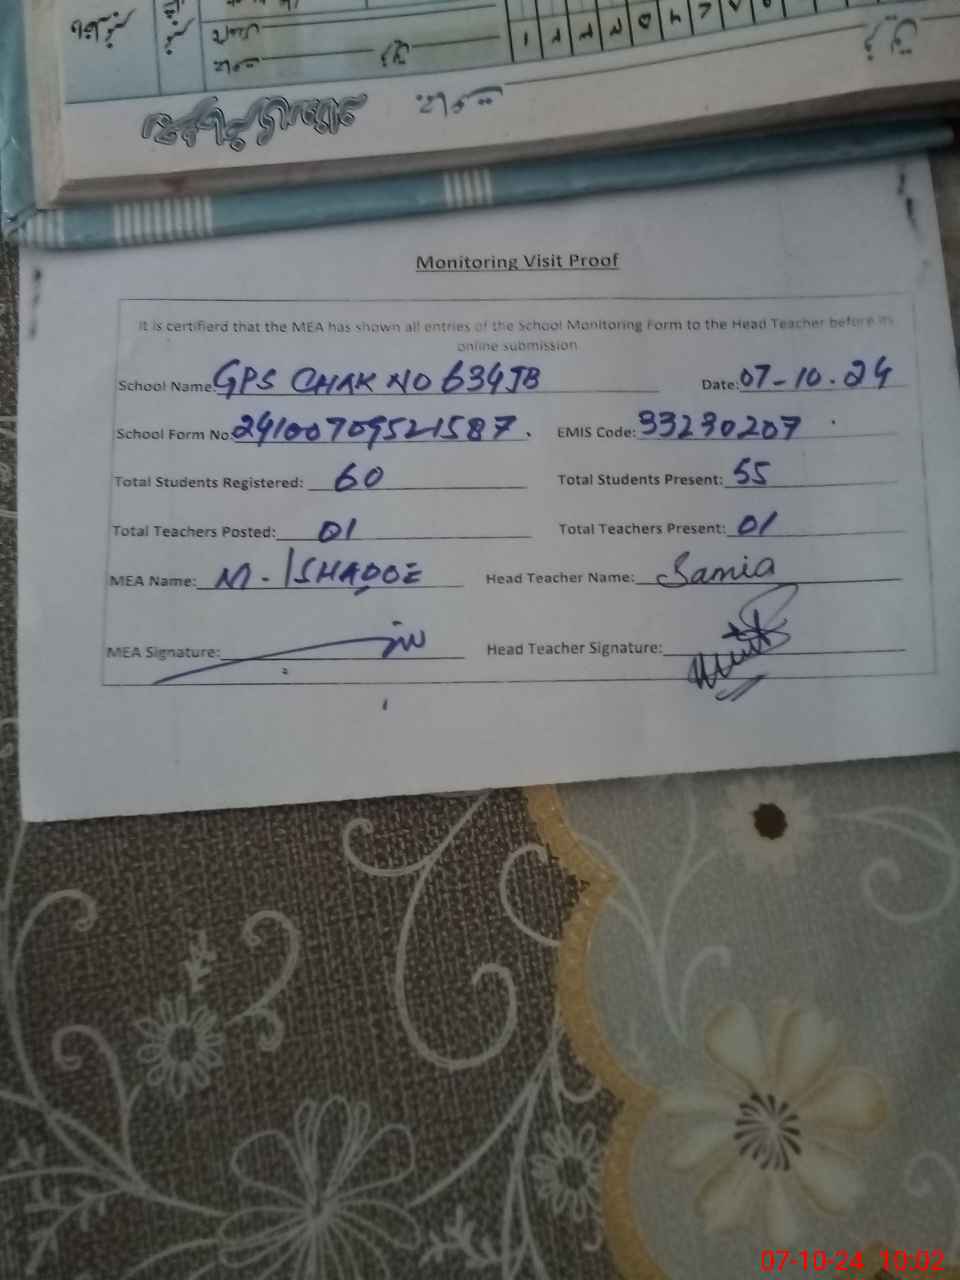 Monitoring Visit Proof
It is certifierd that the MEA has shown all entries of the School Monitoring Form to the Head Teacher before its
online submission
School Name: GPS CHAK NO 634JB Date: 07-10-24
School Form No: 24100709521587. EMIS Code: 33230207
Total Students Registered: 60 Total Students Present: 55
Total Teachers Posted: 01 Total Teachers Present: 01
MEA Name: M. ISHADOE Head Teacher Name: Samia
MEA Signature: Head Teacher Signature:
07-10-24 10:02